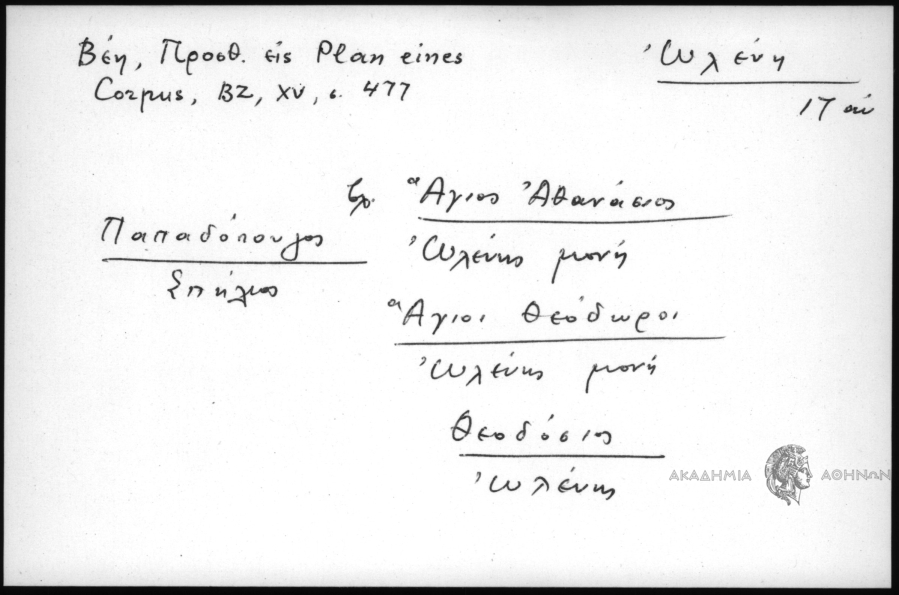 Βέη, Προσθ. εἰς Plan eines
Corpus, BZ, XV, σ. 477
Ὠλένη
17 αἰ
Παπαδόπουλος
Σπήλιος
βλ. Ἅγιος Ἀθανάσιος
Ὠλένης μονή
Ἅγιοι Θεόδωροι
Ὠλένης μονή
Θεοδόσιος
Ὠλένης
ΑΚΑΔΗΜΙΑ ΑΘΗΝΩΝ